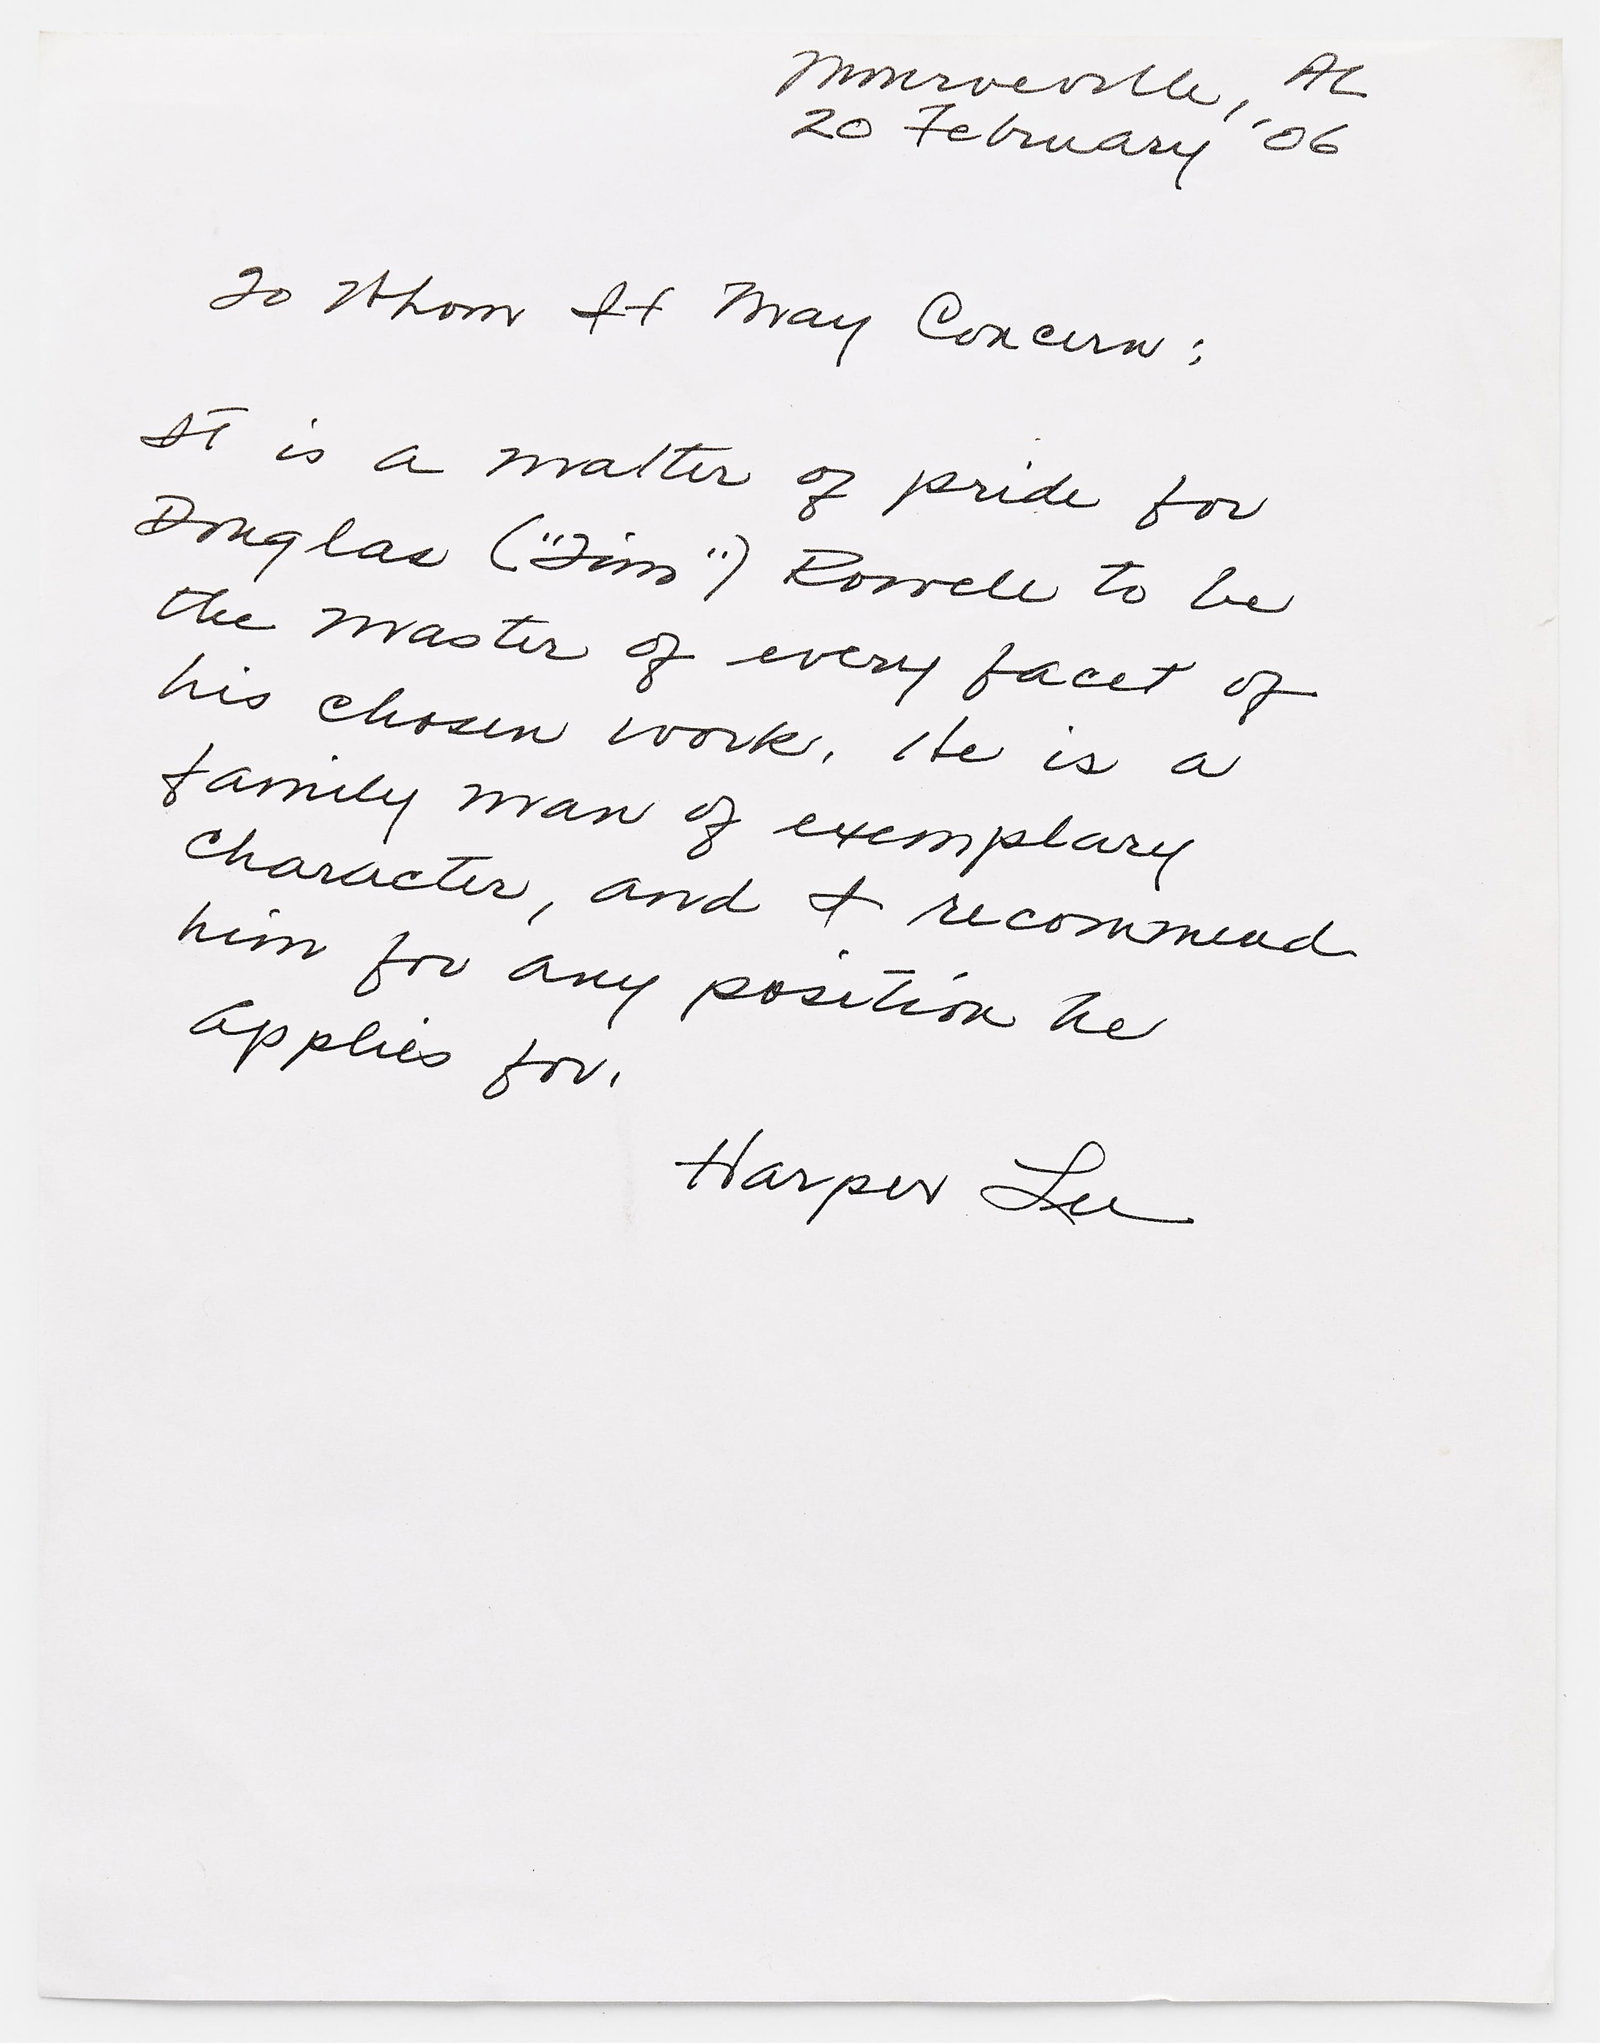 Monroeville, AL
20 February '06
To Whom It May Concern:
It is a matter of pride for
Douglas ("Jim") Rowell to be
the master of every facet of
his chosen work. He is a
family man of exemplary
character, and I recommend
him for any position he
applies for.
Harper Lee